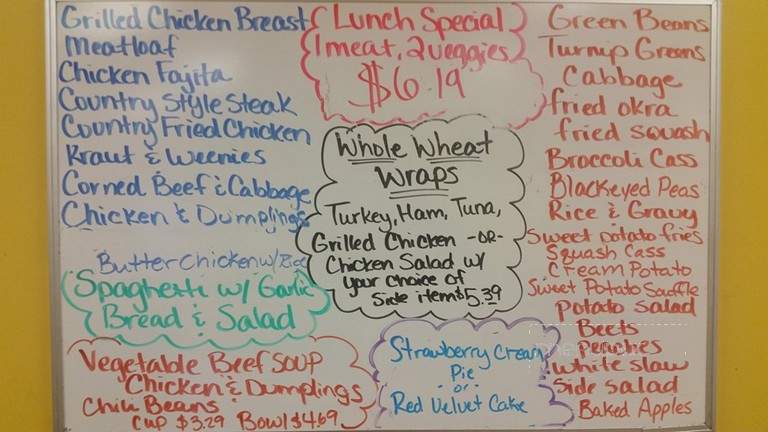 Grilled Chicken Breast
Meatloaf
Chicken Fajita
Country Style Steak
Country Fried Chicken
Kraut & Weenies
Corned Beef & Cabbage
Chicken & Dumplings
Butter Chicken w/ Rice
Spaghetti w/ Garlic
Bread & Salad
Vegetable Beef Soup
Chicken & Dumplings
Chili Beans
Cup $3.29 Bowl $4.69
Lunch Special
1 meat, 2 veggies
$6.19
Whole Wheat
Wraps
Turkey, Ham, Tuna,
Grilled Chicken -OR-
Chicken Salad w/
your choice of
Side item $5.39
Strawberry Cream
Pie
-or-
Red Velvet Cake
Green Beans
Turnip Greens
Cabbage
fried okra
fried squash
Broccoli Cass
Blackeyed Peas
Rice & Gravy
Sweet potato fries
Squash Cass
Cream Potato
Sweet Potato Souffle
Potato Salad
Beets
Peaches
White slaw
Side Salad
Baked Apples